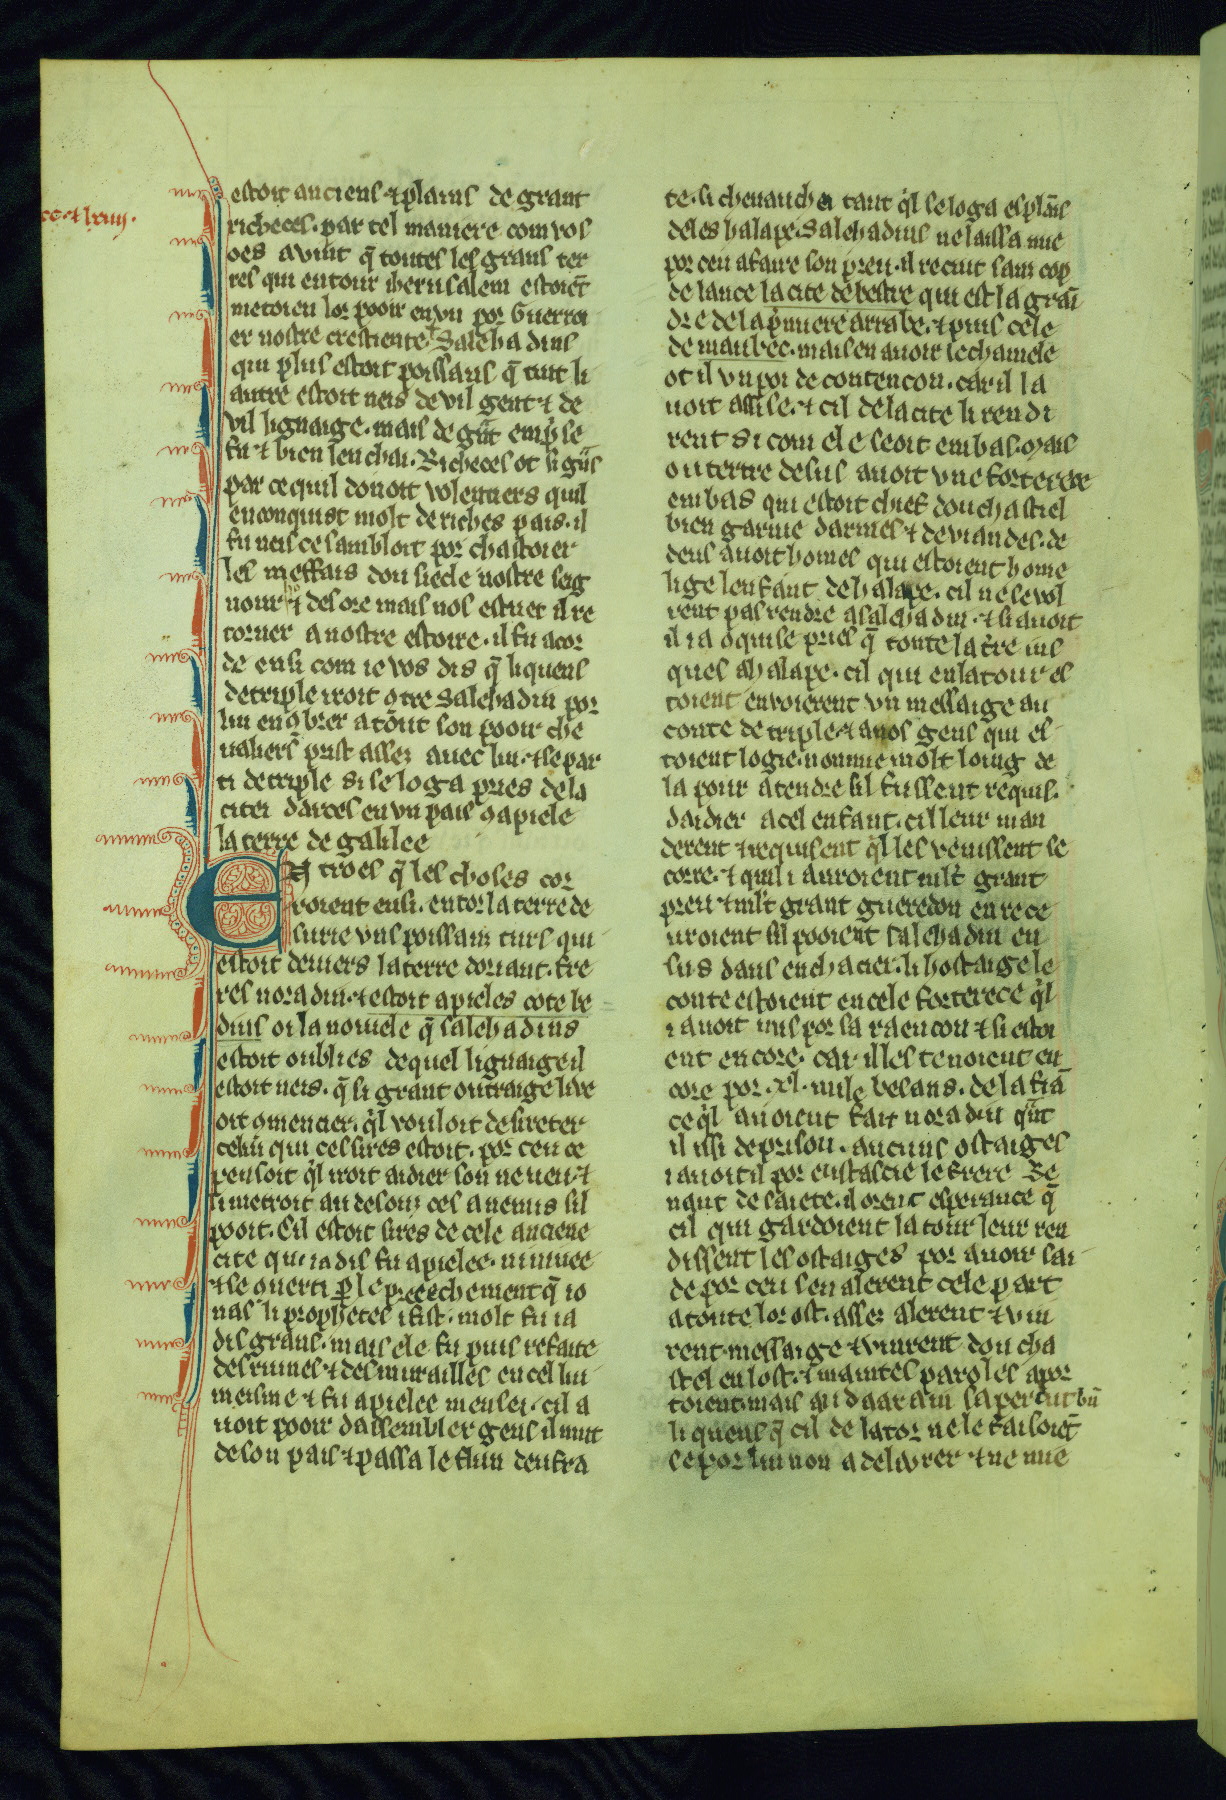 cc·⁊ lxiiij·
estoit anciens ⁊ plains de grant
richeces· par tel maniere com vos
oes avint q̄ toutes les grans ter
res qui entour iherusalem estoiēt
metoien lor pooir en vn por Guerroi
er nostre crestiente· Salehadins
qui plus estoit poissans q̄ tuit li
autre estoit neis de vil gent ⁊ de
vil lignaige· mais de gnt empse
fu ⁊ bien len chai· Richeces ot si gns
par ce quil donoit volentiers quil
en conquist molt de riches pais· il
fu neis ce sambloit por chastoier
les meffais dou siecle nostre seig
nour ⁊ desore mais nos estuet il re
torner a nostre estoire· il fu acor
de ensi com ie vos dis q̄ li quens
de triple iroit ꝯtre Salehadin por
lui enꝯbrer a tout son pooir che
ualiers prist assez auec lui ⁊ se par
ti de triple si se loga pries de la
citei darces en vn pais ꝯ apiele
la terre de galilee
En troes q̄ les choses cor
roient ensi· entor la terre de
surie vns poissans turs qui
estoit deuiers la terre doriant· fre
res noradin· ⁊ estoit apieles cote be
dins oi la nouuele q̄ salehadins
estoit oublies de quel lignaige il
estoit neis· q̄ si grant outraige lave
oit ꝯmencier· ql vouloit desireter
celui qui ces sires estoit· por ceu ce
pensoit ql iroit aidier son neueu ⁊
si metroit au desouz ces anemis sil
pooit· Cil estoit sires de cele anciene
cite qui iadis fu apielee· niniuee
⁊ se ꝯuerti p le preechement q̄ io
nas li prophetes i fist· molt fu ia
dis grans· mais ele fu puis refaite
des ruines ⁊ des murailles en cel lui
meisme ⁊ fu apielee meusei· cil a
uoit pooir dassembler gens il muit
de son pais ⁊ passa le flun deufra
te· si cheuaucha tant ql se loga es plais
deles halape· Salehadins ne laissa mie
por ceu a faire son preu· il reciut sans cop
de lance la cite de bestre qui est la grai
dre de la pmiere arrabe· ⁊ puis cele
de maubec· mais en auoir le chamele
ot il vn poi de contencon· car il la
uoit assise· ⁊ cil de la cite li rendi
rent si com ele seoit em bas· Mais
ou tertre desus auoit vne forterece
em bas qui estoit chief dou chastiel
bien garnie darmes ⁊ de viandes· de
dens auoit homes qui estoient home
lige lenfant de halape· cil ne se vol
rent pas rendre a salehadin· ⁊ si auoit
il ia ꝯquise pries q̄ toute la tre ius
ques a halape· cil qui en la tour es
toient envoierent vn messaige au
conte de triple ⁊ a nos gens qui es
toient logie· non mie molt loing de
la pour atendre sil fussent requis·
daidier a cel enfant· cil leur man
derent ⁊ requisent ql les venissent se
corre· ⁊ quil i auroient mlt grant
preu ⁊ mlt grant gueredon en rece
uroient sil pooient salehadin en
sus dans enchacier· li hostaige le
conte estoient en cele forterece ql
i auoit mis por sa raencon ⁊ si estoi
ent encore· car il les tenoient en
core por ·xl· mile besans· de la fiā
ce ql auoient fait noradin qnt
il issi de prison· aucuns ostaiges
i auoit il por eustascie le frere Re
naut de saiete· il orent esperance q̄
cil qui gardoient la tour leur ren
dissent les ostaiges por auoir lai
de por ceu sen alerent cele part
a toute lor ost· assez alerent ⁊ vin
rent messaige ⁊ vinrent dou cha
stel en lost· ⁊ maintes paroles apor
toient· mais au daarain sapercut bn
li quens q̄ cil de la tor ne le faisoiēt
se por lui non a delivrer ⁊ ne mie